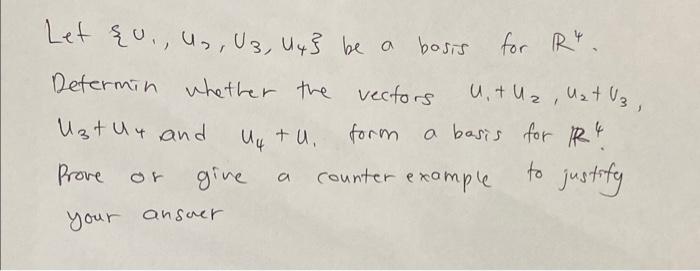 Let {u₁, u₂, u₃, u₄} be a basis for ℝ⁴.
Determin whether the vectors u₁ + u₂, u₂ + u₃,
u₃ + u₄ and u₄ + u₁ form a basis for ℝ⁴.
Prove or give a counter example to justify
your answer